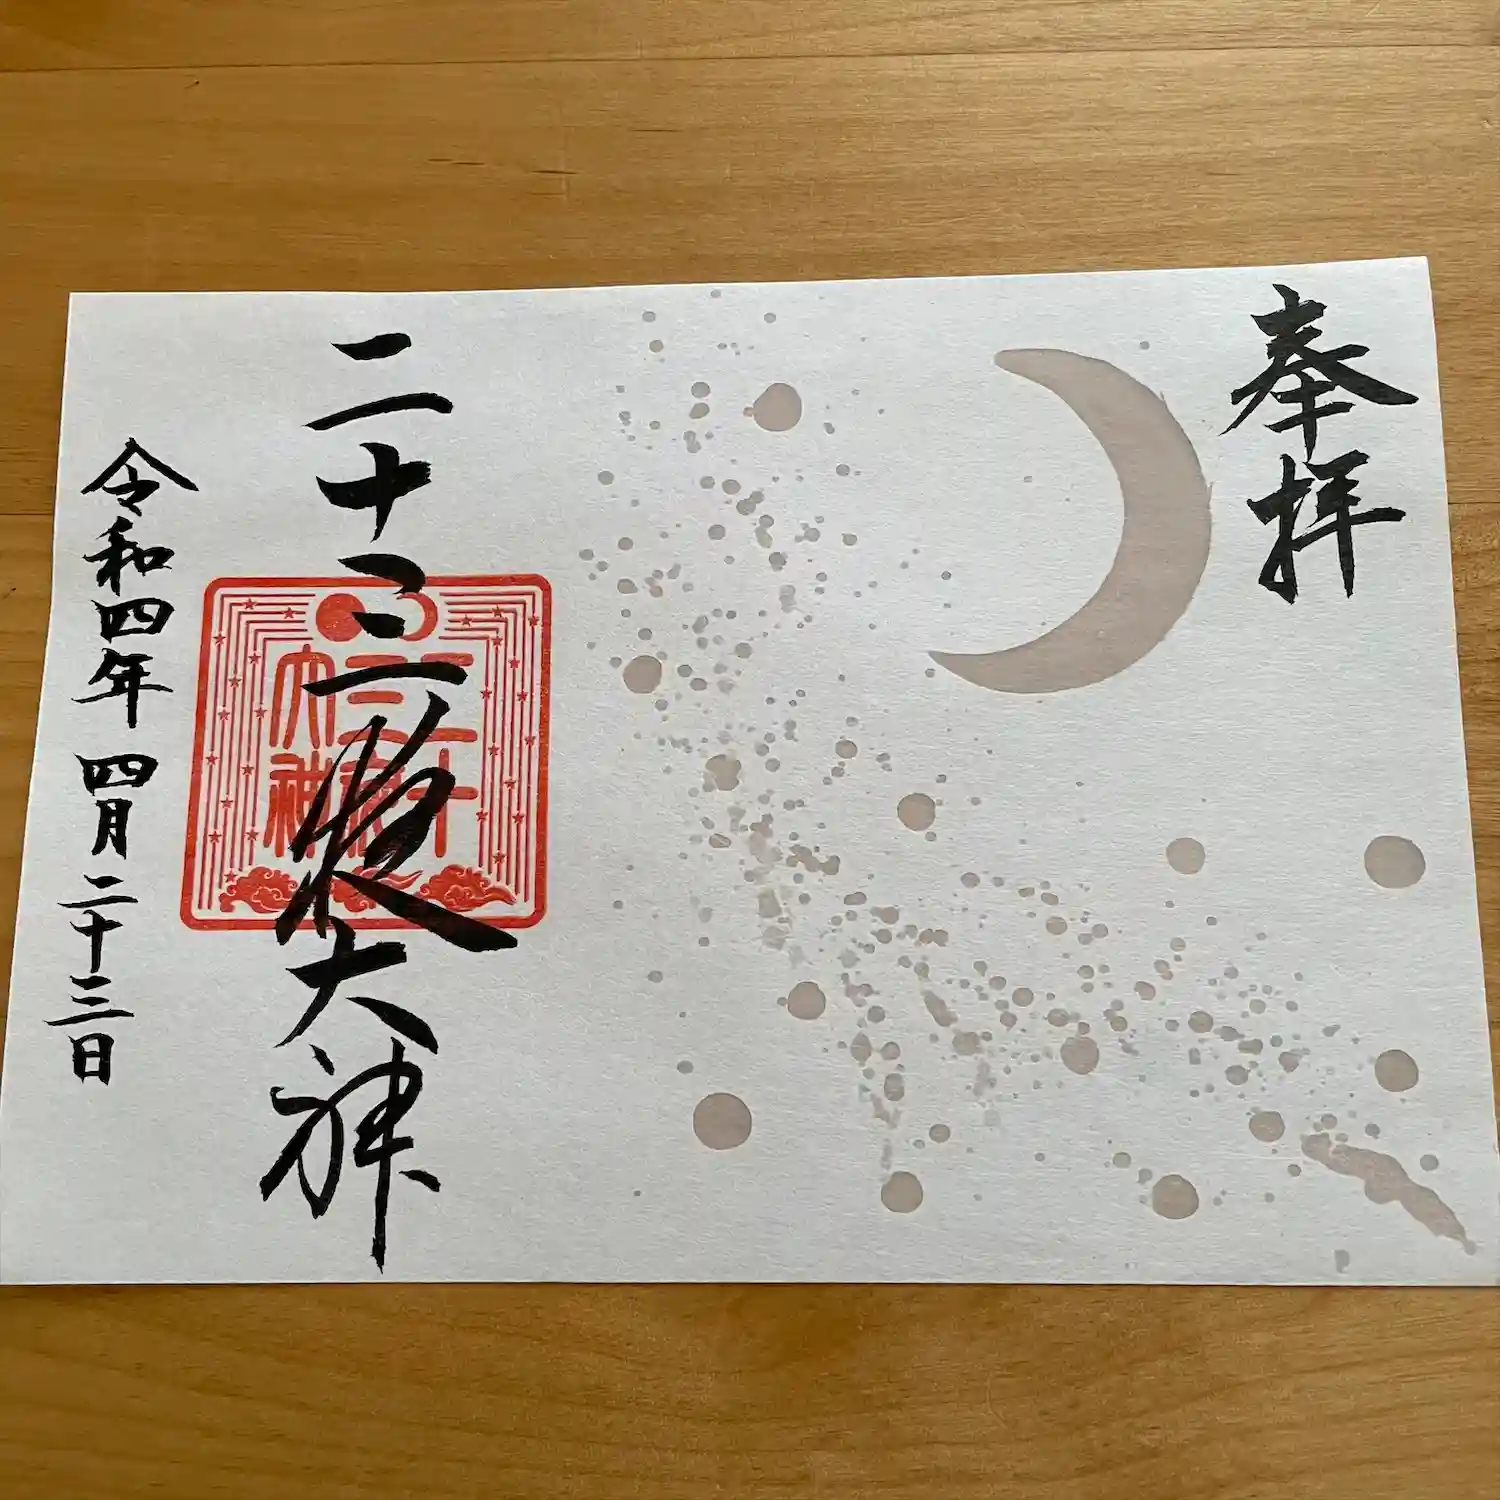 奉拝
二十三夜大神
令和四年 四月二十三日
二十
三夜
大神